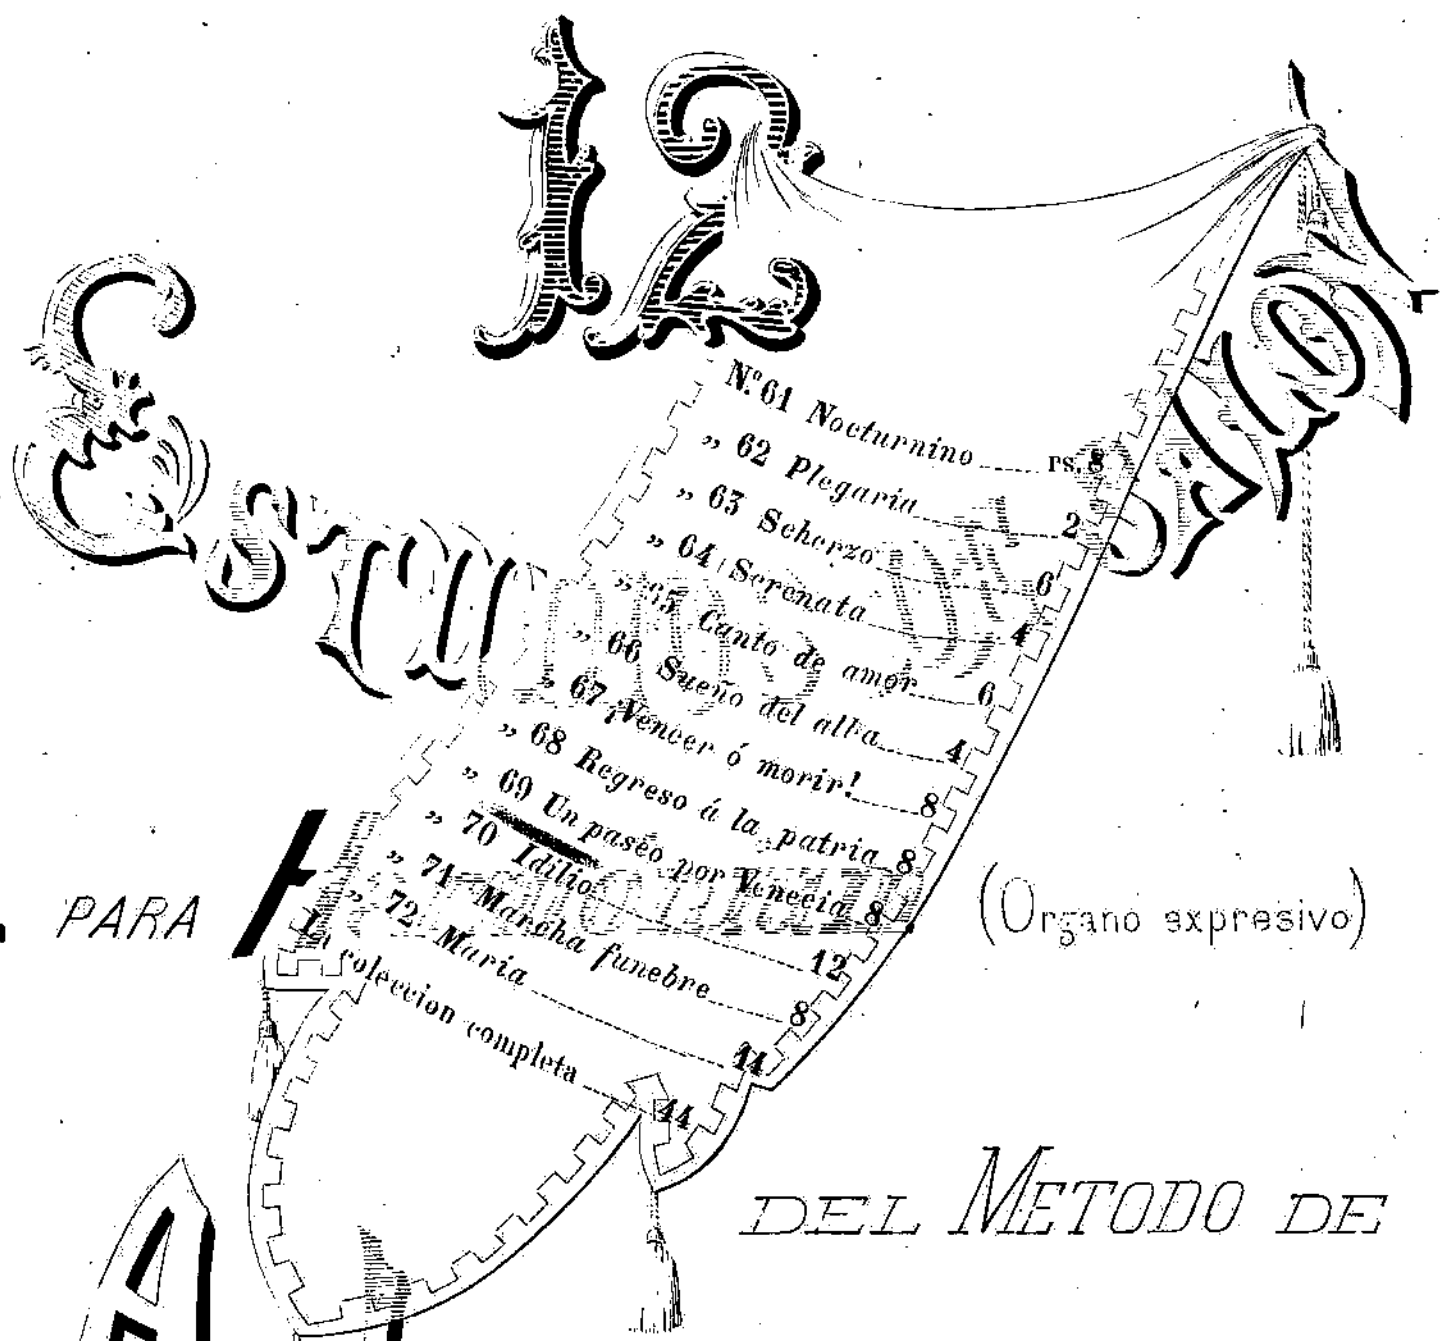 12
N.º 61 Nocturnino rs. 8
„ 62 Plegaria 2
„ 63 Scherzo 6
„ 64 Serenata 4
„ 65 Canto de amor 6
„ 66 Sueño del alba 4
„ 67 ¡Vencer ó morir! 8
„ 68 Regreso á la patria 8
„ 69 Un paseo por Venecia 8
„ 70 Idilio 12
„ 71 Marcha funebre 8
„ 72 Maria 14
La coleccion completa 44
PARA
(Organo expresivo)
DEL METODO DE